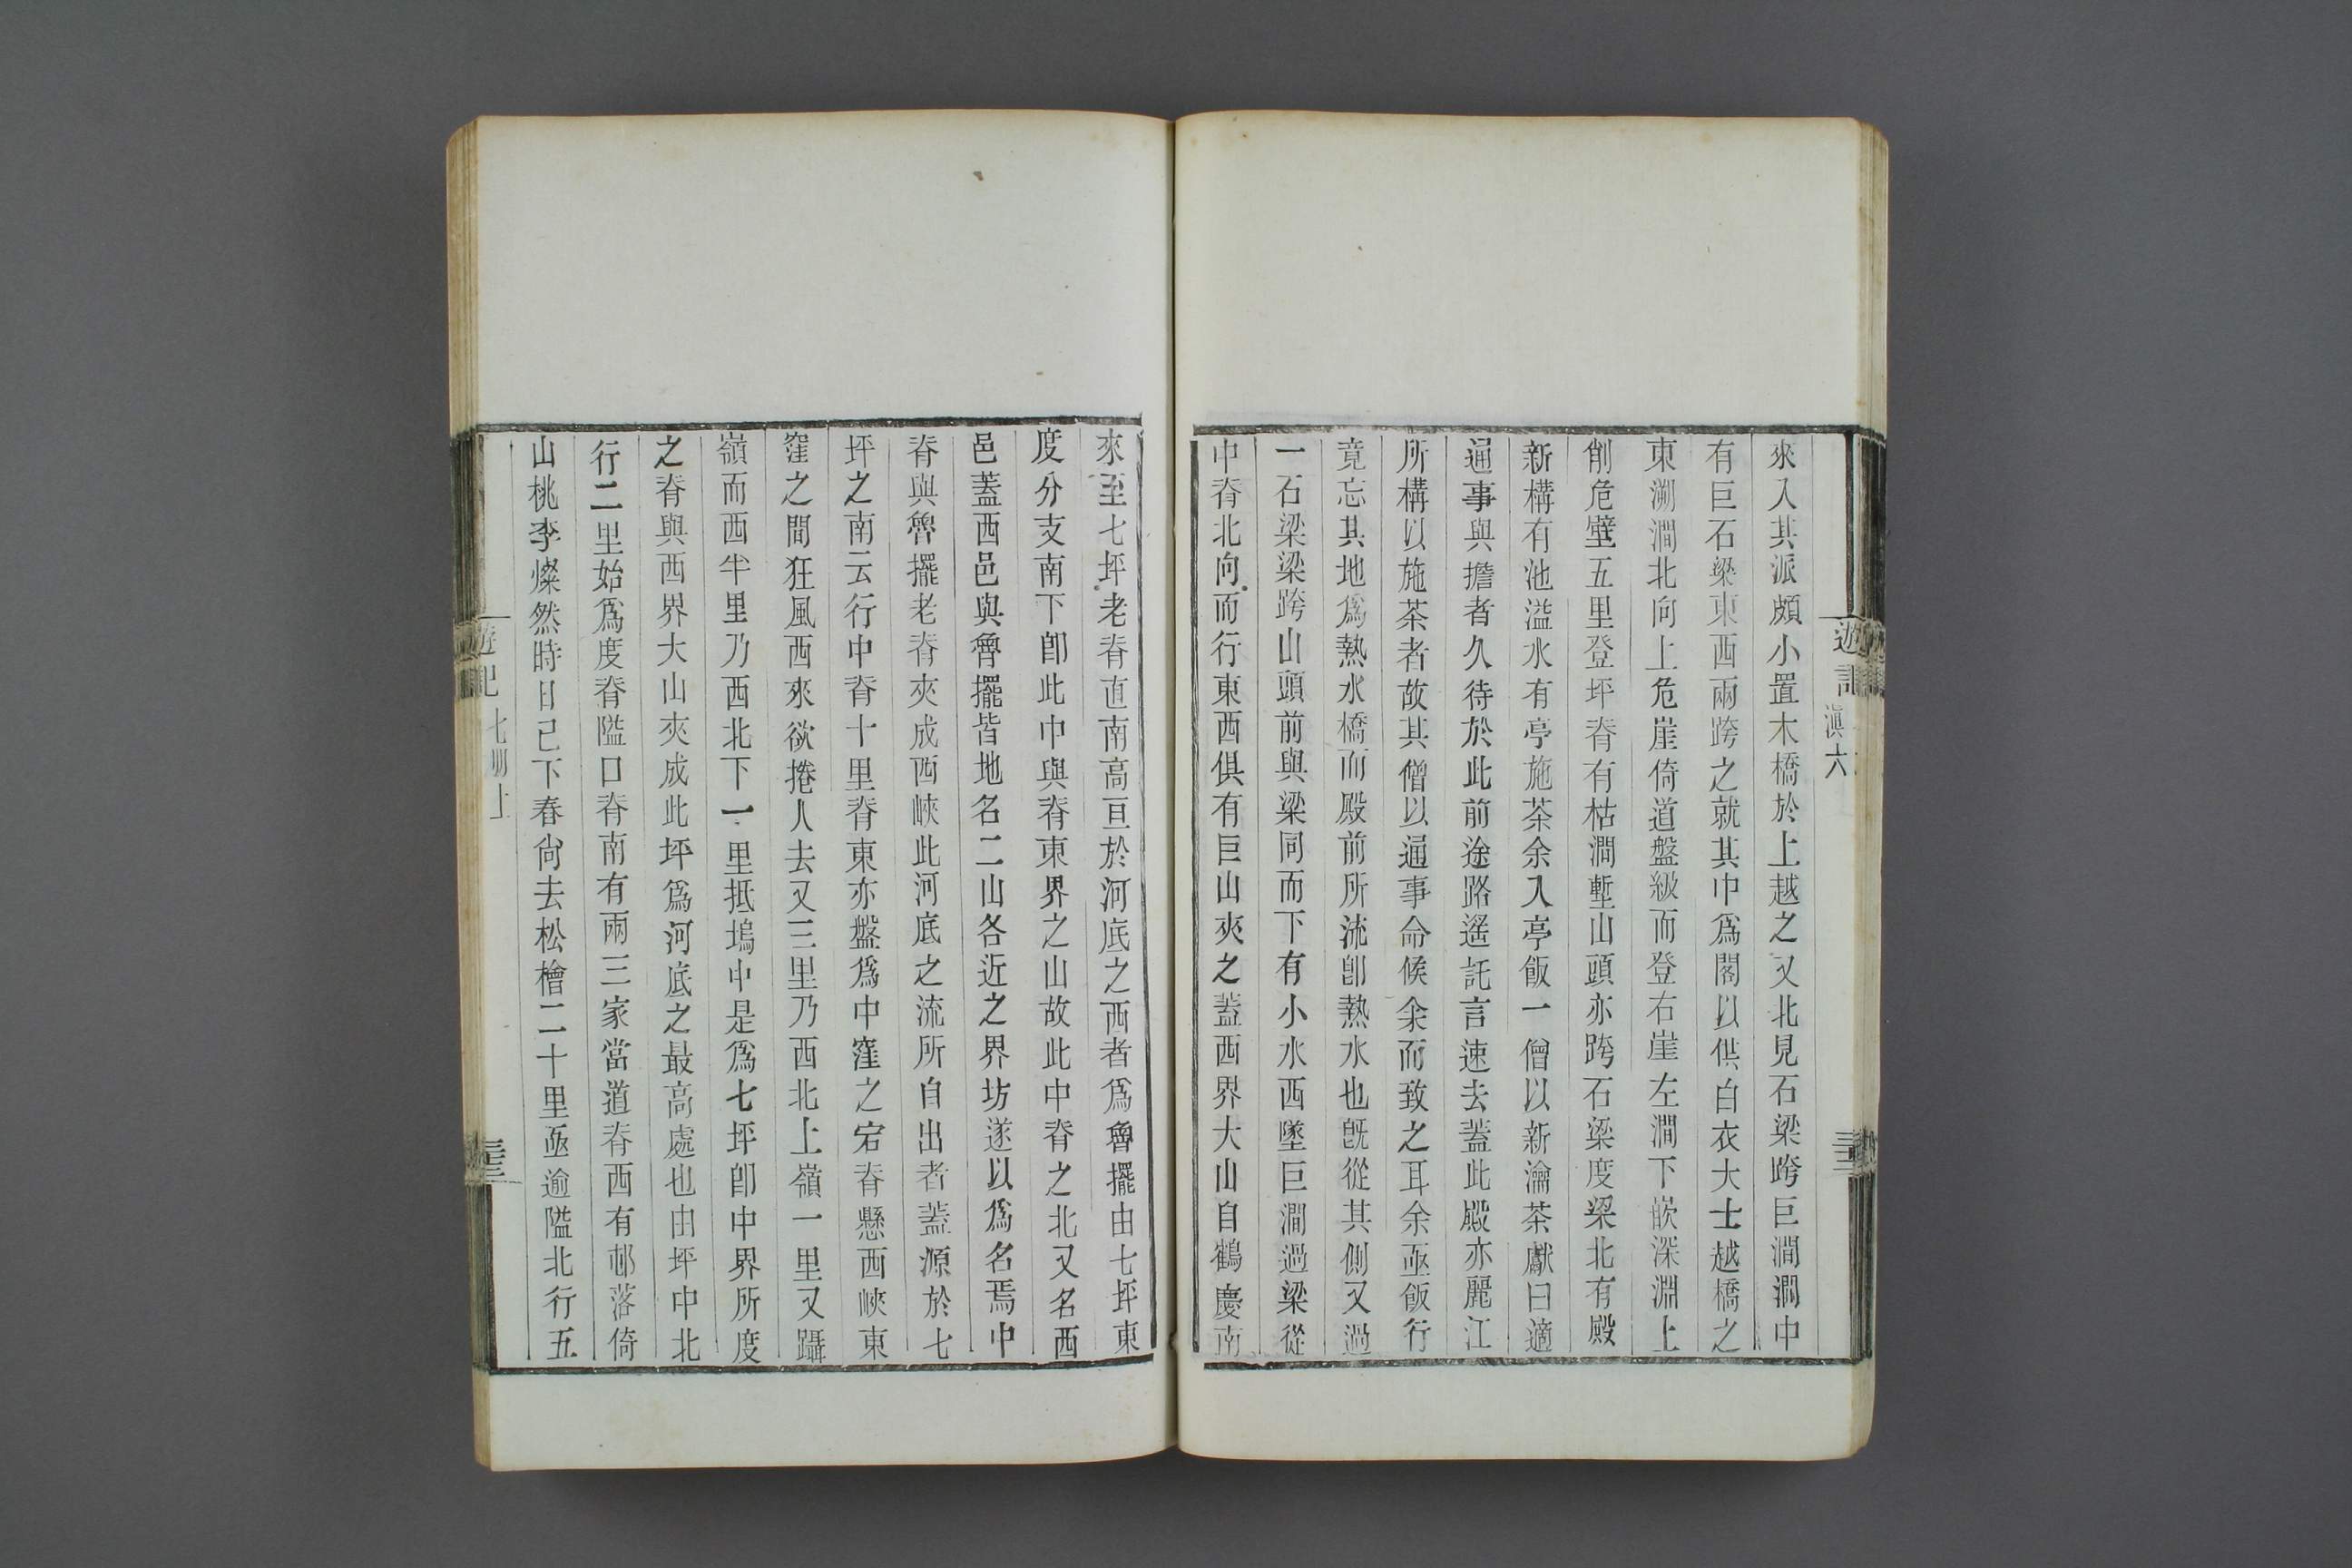 遊記
滇六
來入其派頗小置木橋於上越之又北見石梁跨巨澗澗中
有巨石梁東西兩跨之就其中爲閣以供白衣大士越橋之
東溯澗北向上危崖倚道盤級而登右崖左澗下嵌深淵上
削危壁五里登坪脊有枯澗塹山頭亦跨石梁度梁北有殿
新構有池溢水有亭施茶余入亭飯一僧以新瀹茶獻曰適
通事與擔者久待於此前途路遙託言速去蓋此殿亦麗江
所構以施茶者故其僧以通事命候余而致之耳余亟飯行
竟忘其地爲熱水橋而殿前所流卽熱水也旣從其側又過
一石梁梁跨山頭前與梁同而下有小水西墜巨澗過梁從
中脊北向而行東西俱有巨山夾之蓋西界大山自鶴慶南
來至七坪老脊直南高亘於河底之西者爲魯擺由七坪東
度分支南下卽此中與脊東界之山故此中脊之北又名西
邑蓋西邑與魯擺皆地名二山各近之界坊遂以爲名焉中
脊與魯擺老脊夾成西峽此河底之流所自出者蓋源於七
坪之南云行中脊十里脊東亦盤爲中窪之宕脊懸西峽東
窪之間狂風西來欲捲人去又三里乃西北上嶺一里又躡
嶺而西半里乃西北下一里抵塢中是爲七坪卽中界所度
之脊與西界大山夾成此坪爲河底之最高處也由坪中北
行二里始爲度脊隘口脊南有兩三家當道脊西有邨落倚
山桃李燦然時日已下舂尙去松檜二十里亟逾隘北行五
遊記
七册上